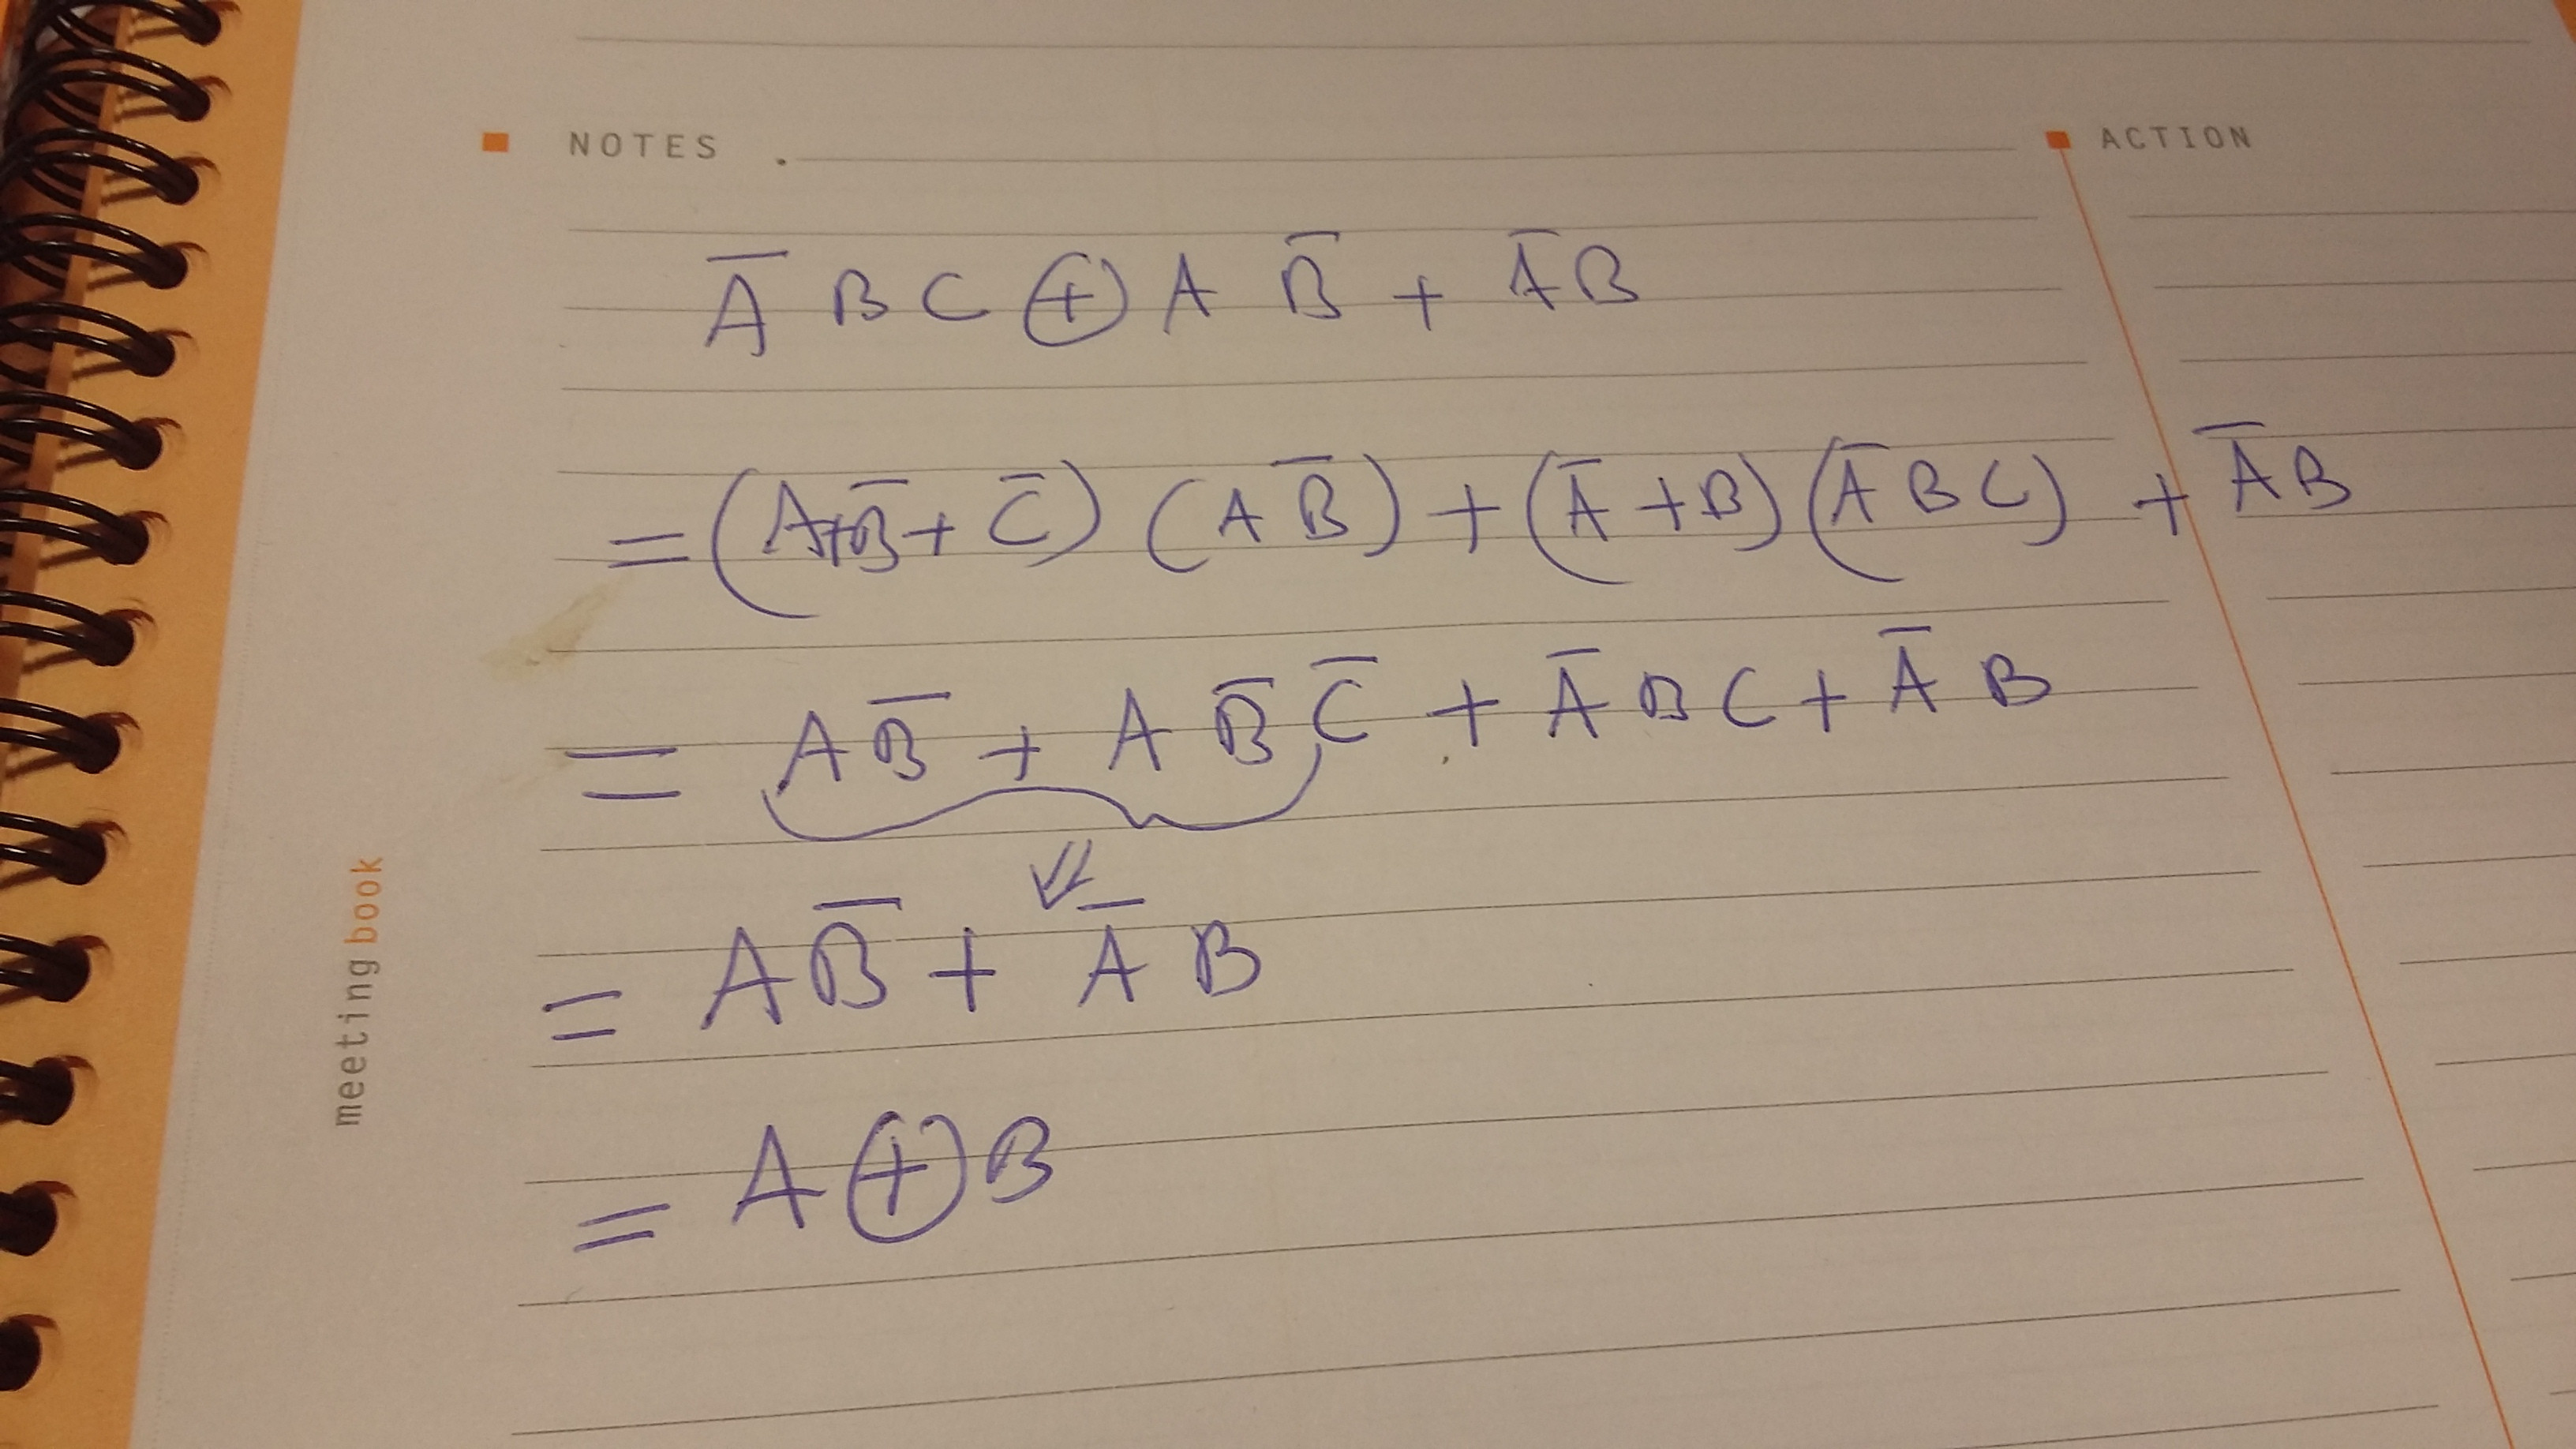 NOTES
ACTION
A̅ B C ⊕ A B̅ + A̅ B
= (A + B̅ + C̅) (A B̅) + (A̅ + B) (A̅ B C) + A̅ B
= A B̅ + A B̅ C̅ + A̅ B C + A̅ B
= A B̅ + A̅ B
= A ⊕ B
meeting book